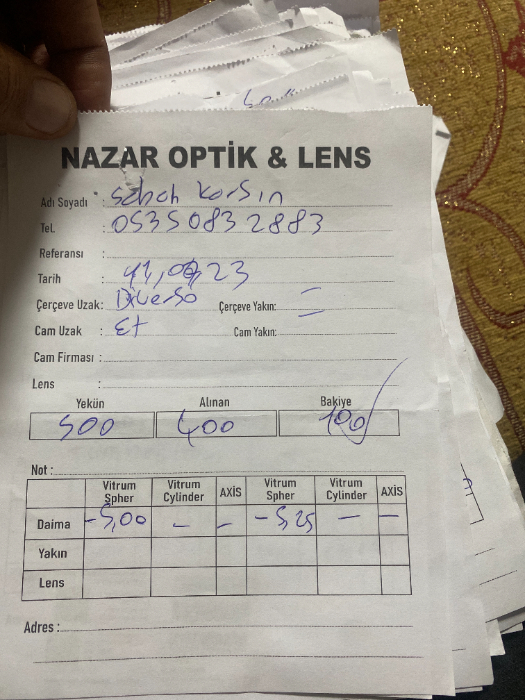 NAZAR OPTİK & LENS
Adı Soyadı : Sabah Korsin
Tel. : 0535 083 2883
Referansı :
Tarih :
Çerçeve Uzak: Diverso Çerçeve Yakın: =
Cam Uzak : Et Cam Yakın:
Cam Firması :
Lens :
Yekün Alınan Bakiye
500 400 100
Not :
Vitrum Spher Vitrum Cylinder AXİS Vitrum Spher Vitrum Cylinder AXİS
Daima -5,00 - - -5,25 - -
Yakın
Lens
Adres :